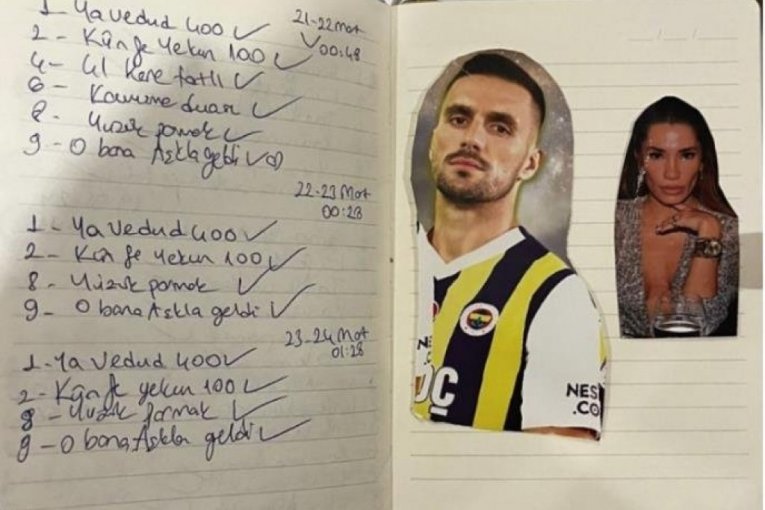 1 - Ya Vedud 400 ✓
21-22 Mart
✓ 00:48
2 - Kün fe Yekün 100 ✓
4 - 41 Kere tatlı ✓
6 - Kavuşma duası ✓
8 - Yüzük parmak ✓
9 - O bana Aşkla geldi ✓
22-23 Mart
00:28
1 - Ya Vedud 400 ✓
2 - Kün fe Yekün 100 ✓
8 - Yüzük parmak ✓
9 - O bana Aşkla geldi ✓
23-24 Mart
01:28
1 - Ya Vedud 400 ✓
2 - Kün fe yekün 100 ✓
8 - Yüzük parmak ✓
9 - O bana Aşkla geldi ✓
NES
.CO
OÇ
NES
.CO